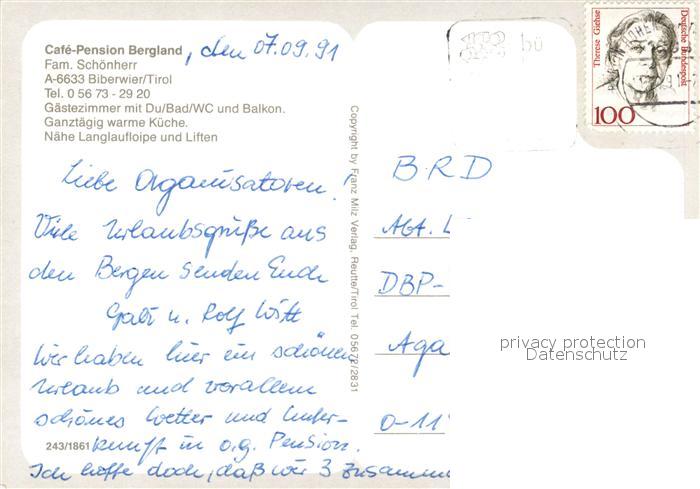 Café-Pension Bergland, den 07.09.91
Fam. Schönherr
A-6633 Biberwier/Tirol
Tel. 0 56 73 - 29 20
Gästezimmer mit Du/Bad/WC und Balkon.
Ganztägig warme Küche.
Nähe Langlaufloipe und Liften
Liebe Organisatoren!
Viele Urlaubsgrüße aus
den Bergen senden Euch
Gabi u. Rolf Witt
Wir haben hier ein schönen
Urlaub und vorallem
schönes Wetter und Unter-
kunft in o.g. Pension.
Ich hoffe doch, daß wir 3 zusamme
243/1861
Copyright by Franz Milz Verlag, Reutte/Tirol Tel. 05672/2831
Therese Giehse
Deutsche Bundespost
100
BRD
Abt. L
DBP-
Aga
O-11
privacy protection
Datenschutz